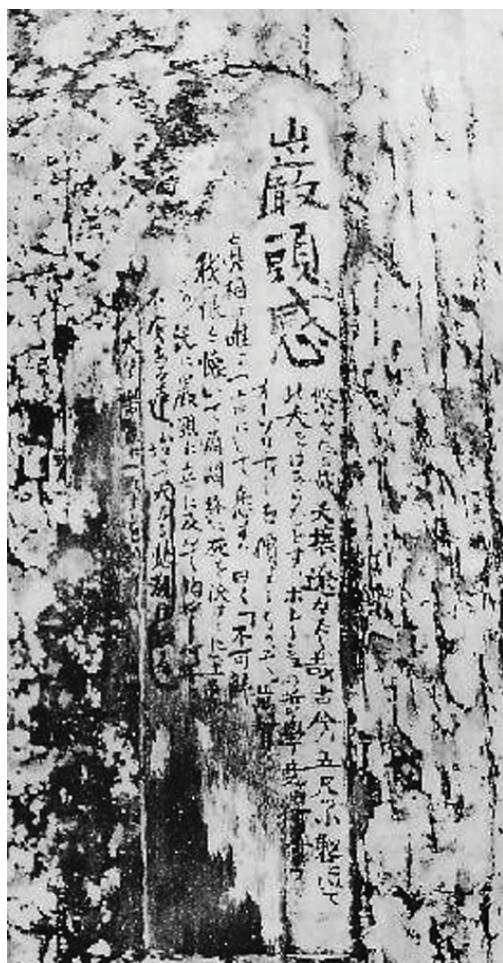 巖頭之感
悠々たる哉天壤遼々たる哉古今五尺の小躯を以て
此大をはからむとすホレーショの哲學竟に何等の
オーソリチーを價するものぞ萬有の
眞相は唯一言にして悉す曰く「不可解
我恨を懐いて煩悶終に死を決するに至る
既に巖頭に立つに及んで胸中何等の
不安
大なる